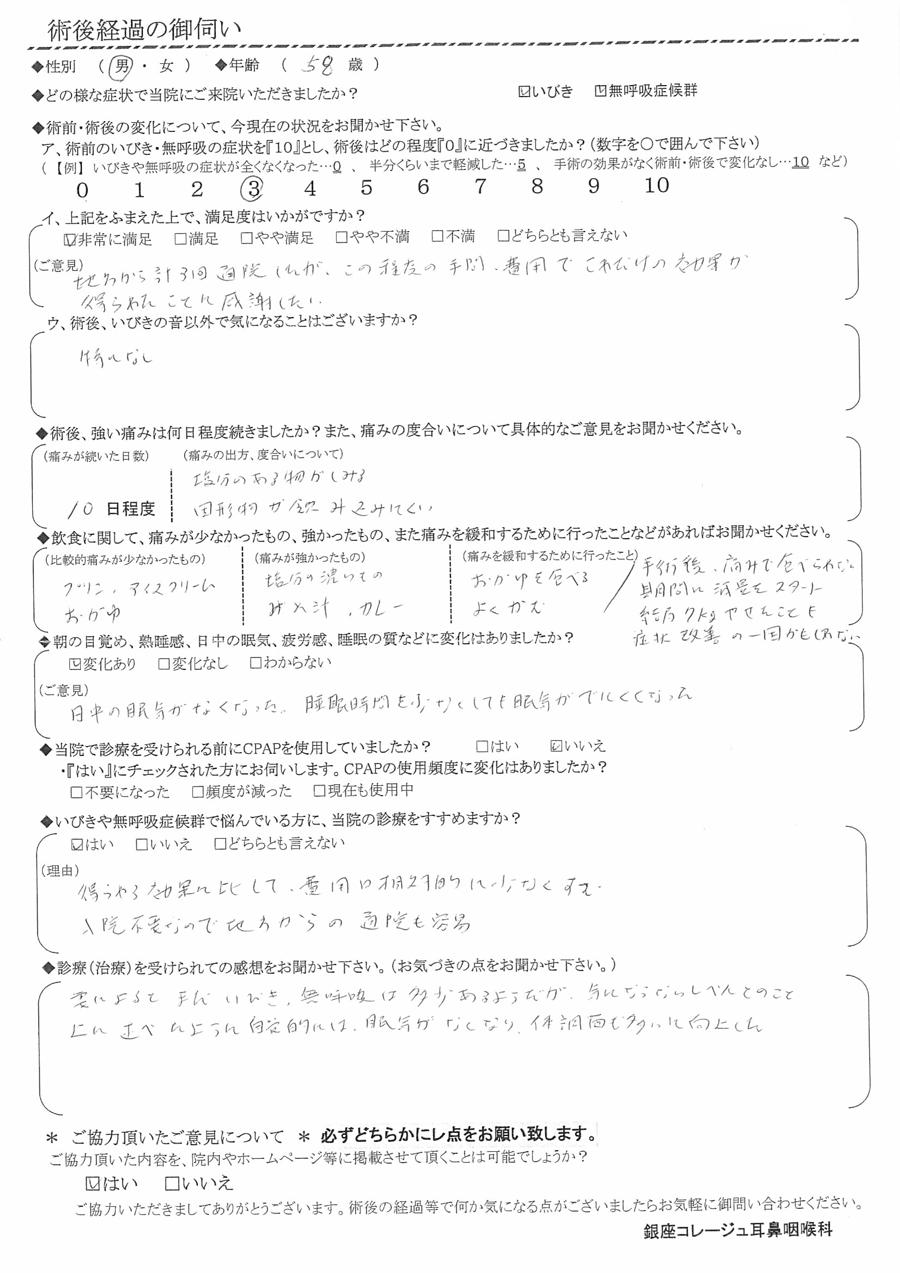 術後経過の御伺い
◆性別 （ 男 ・ 女 ） ◆年齢 （ 58 歳 ）
◆どの様な症状で当院にご来院いただきましたか？ ☑いびき ☑無呼吸症候群
◆術前・術後の変化について、今現在の状況をお聞かせ下さい。
ア、術前のいびき・無呼吸の症状を『10』とし、術後はどの程度『0』に近づきましたか？（数字を○で囲んで下さい）
（ 【例】 いびきや無呼吸の症状が全くなくなった…0 、 半分くらいまで軽減した…5 、 手術の効果がなく術前・術後で変化なし…10 など）
0 1 2 3 4 5 6 7 8 9 10
イ、上記をふまえた上で、満足度はいかがですか？
☑非常に満足 □満足 □やや満足 □やや不満 □不満 □どちらとも言えない
(ご意見)
地方から計3回通院したが、この程度の手間、費用でこれだけの効果が
得られたことに感謝したい
ウ、術後、いびきの音以外で気になることはございますか？
特になし
◆術後、強い痛みは何日程度続きましたか？また、痛みの度合いについて具体的なご意見をお聞かせください。
(痛みが続いた日数) (痛みの出方、度合いについて)
塩分のある物がしみる
10 日程度 固形物が飲み込みにくい
◆飲食に関して、痛みが少なかったもの、強かったもの、また痛みを緩和するために行ったことなどがあればお聞かせください。
(比較的痛みが少なかったもの) (痛みが強かったもの) (痛みを緩和するために行ったこと)
プリン、アイスクリーム
おかゆ
塩分の濃いもの
みそ汁、カレー
おかゆを食べる
よくかむ
手術後、痛みで食べられない
期間に減量をスタート
結局7kgやせたことも
症状改善の一因かもしれない
◆朝の目覚め、熟睡感、日中の眠気、疲労感、睡眠の質などに変化はありましたか？
☑変化あり □変化なし □わからない
(ご意見)
日中の眠気がなくなった。睡眠時間を少なくしても眠気がでにくくなった
◆当院で診療を受けられる前にCPAPを使用していましたか？ □はい ☑いいえ
・『はい』にチェックされた方にお伺いします。CPAPの使用頻度に変化はありましたか？
□不要になった □頻度が減った □現在も使用中
◆いびきや無呼吸症候群で悩んでいる方に、当院の診療をすすめますか？
☑はい □いいえ □どちらとも言えない
(理由)
得られる効果に比して、費用は相対的に少なくすむ。
入院不要なので地方からの通院も容易
◆診療（治療）を受けられての感想をお聞かせ下さい。（お気づきの点をお聞かせ下さい。）
妻によると まだ いびき、無呼吸は多少あるようだが、気にならないレベルとのこと
上に述べたように自覚的には、眠気がなくなり、体調面も多いに向上した
＊ ご協力頂いたご意見について ＊ 必ずどちらかにレ点をお願い致します。
ご協力頂いた内容を、院内やホームページ等に掲載させて頂くことは可能でしょうか？
☑はい □いいえ
ご協力いただきましてありがとうございます。術後の経過等で何か気になる点がございましたらお気軽に御問い合わせください。
銀座コレージュ耳鼻咽喉科